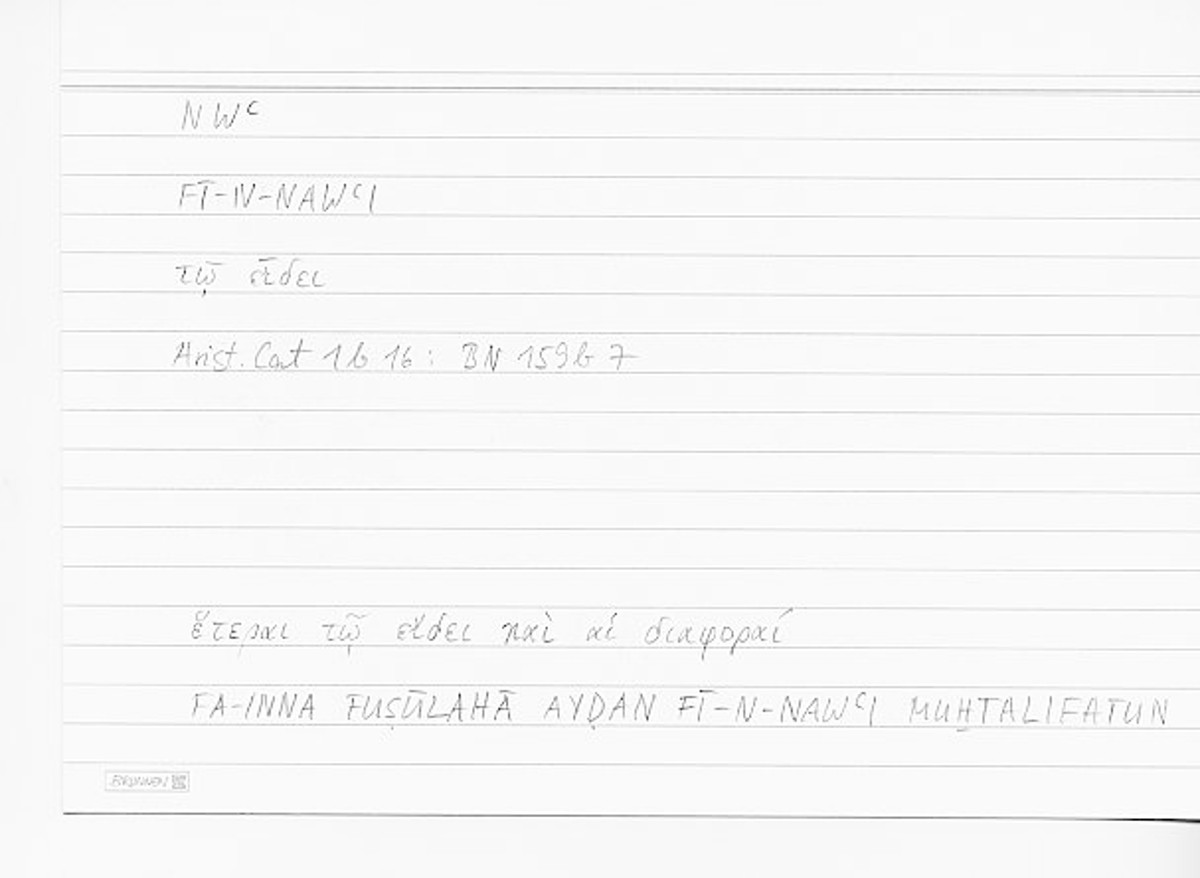 NWʿ
FĪ-N-NAWʿI
τῷ εἴδει
Arist. Cat 1 b 16 : BN 159 b 7
ἕτεραι τῷ εἴδει καὶ αἱ διαφοραί
FA-INNA FUṢŪLAHĀ AYḌAN FĪ-N-NAWʿI MUḪTALIFATUN
BRUNNEN